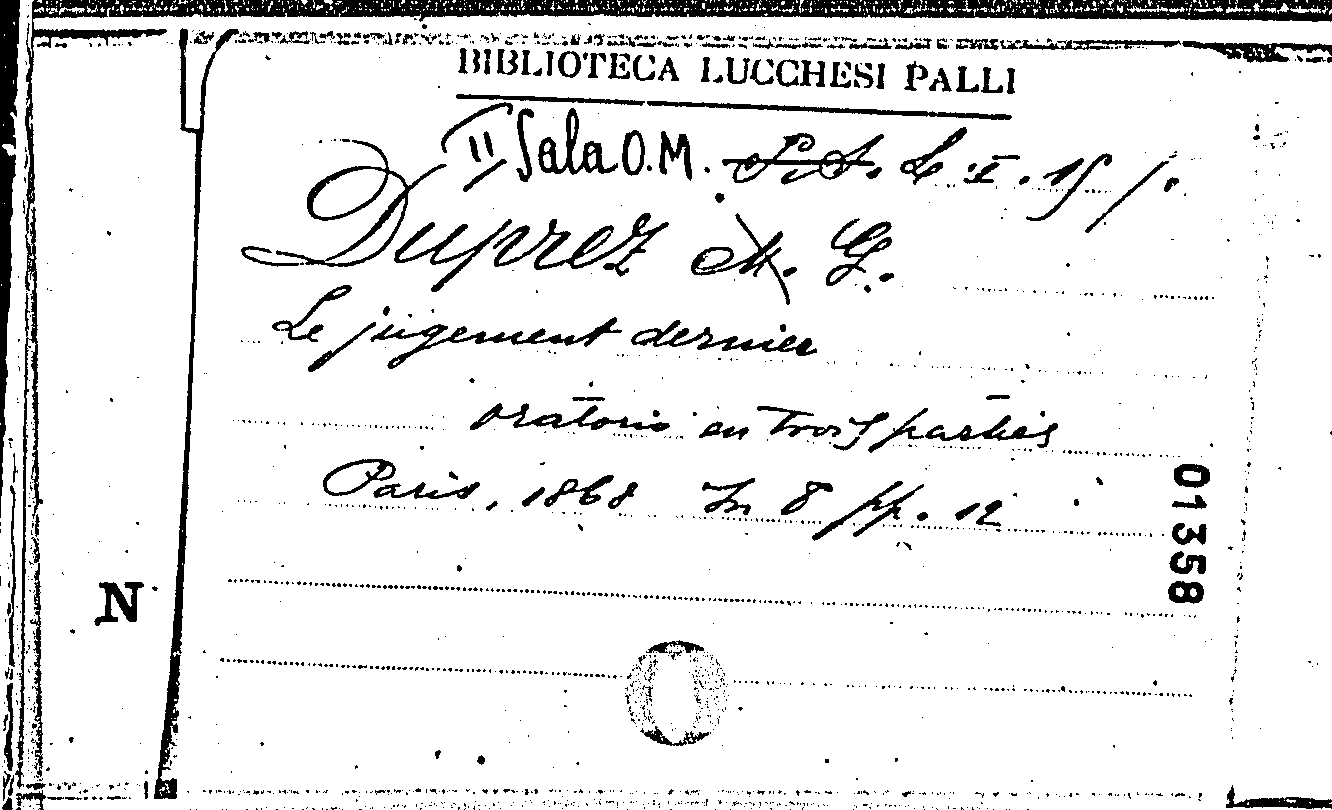 BIBLIOTECA LUCCHESI PALLI
II Sala O.M. L. I. 15
Duprez M. G.
Le jugement dernier
oratorio en trois parties
Paris, 1868 In 8 pp. 12
01358
N